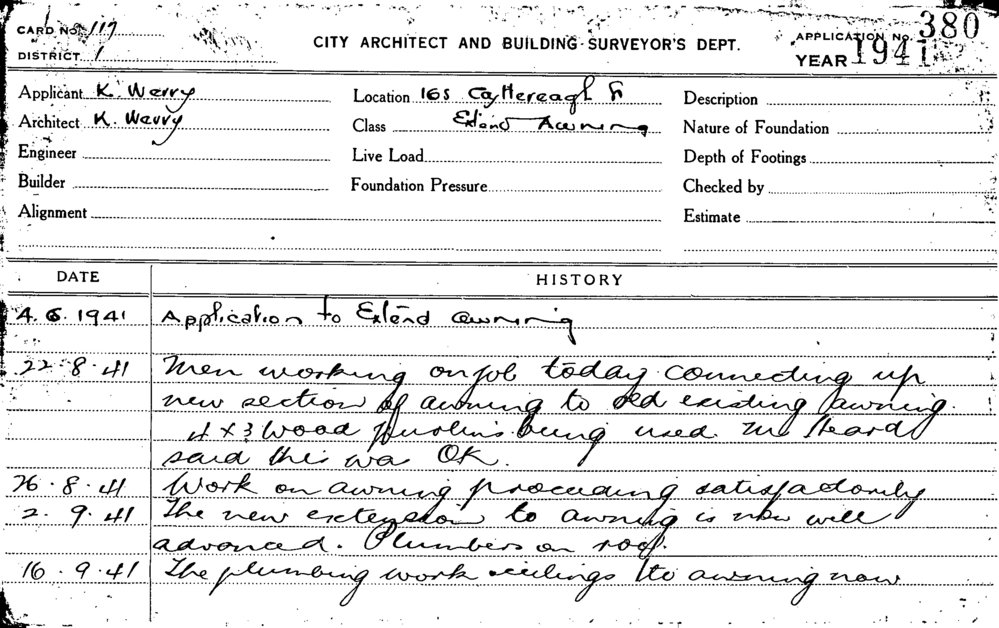 CARD NO. 117
DISTRICT 1
CITY ARCHITECT AND BUILDING SURVEYOR'S DEPT.
APPLICATION No. 380
YEAR 1941
Applicant K. Werry
Architect K. Werry
Engineer
Builder
Alignment
Location 165 Castlereagh St
Class Extend Awning
Live Load
Foundation Pressure
Description
Nature of Foundation
Depth of Footings
Checked by
Estimate
DATE HISTORY
4. 6. 1941 Application to Extend awning
22. 8. 41 Men working on job today connecting up
new section of awning to old existing awning.
4 x 3 wood purlins being used. Mr Heard
said this was OK.
26. 8. 41 Work on awning proceeding satisfactorily
2. 9. 41 The new extension to awning is now well
advanced. Plumbers on roof.
16. 9. 41 The plumbing work ceilings to awning now